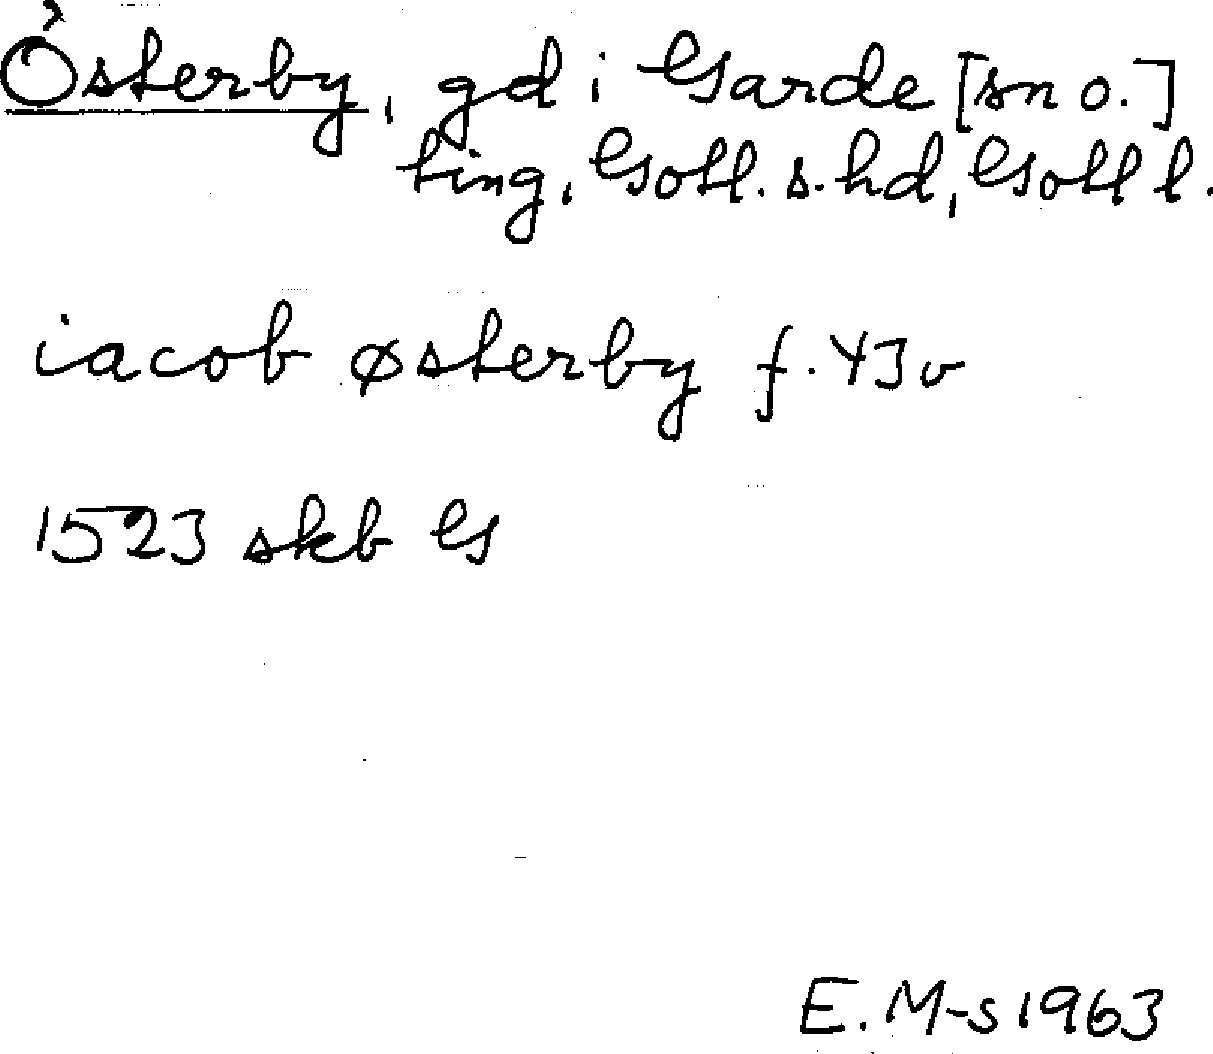 Österby, gd i Garde [sn o.]
ting, Gotl. s. hd, Gotl l.
iacob østerby f. 43v
1523 skb G
E. M-s 1963